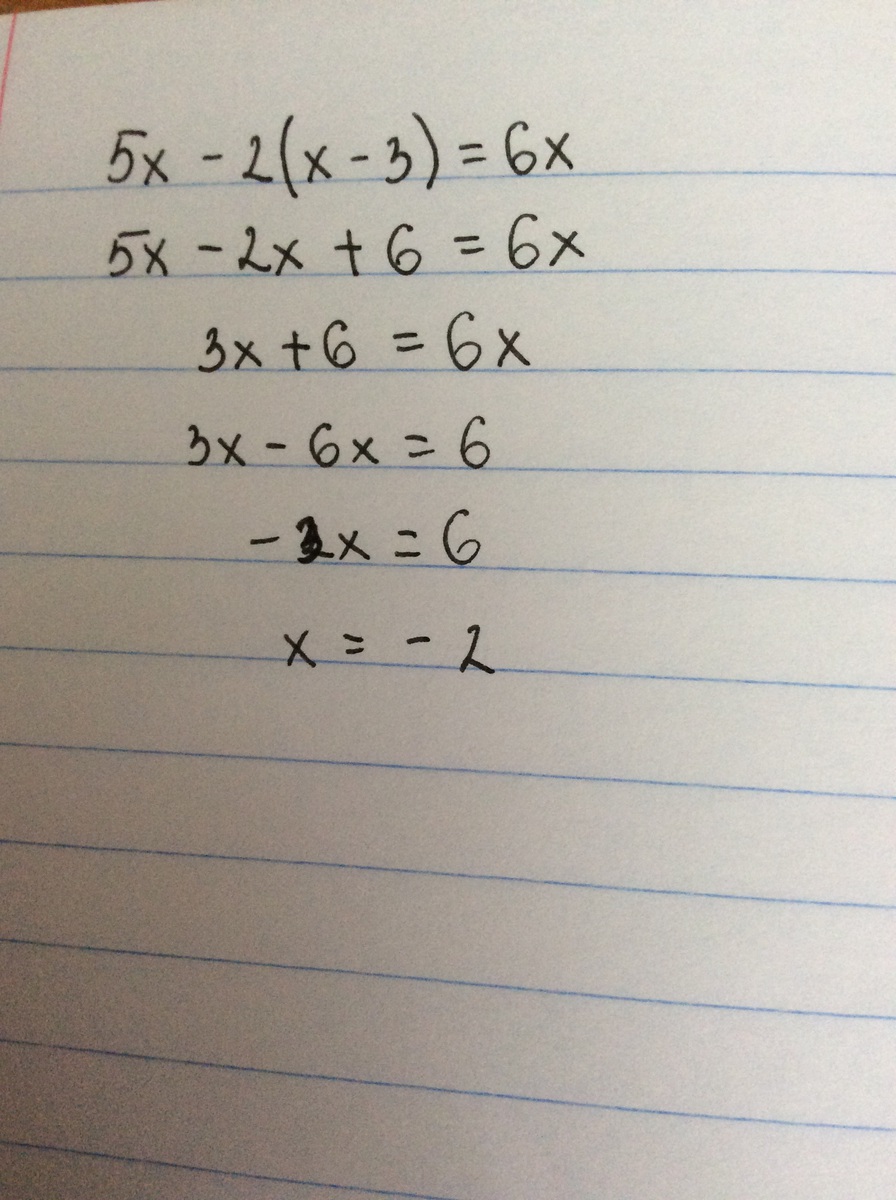 5x - 2(x - 3) = 6x
5x - 2x + 6 = 6x
3x + 6 = 6x
3x - 6x = 6
- 3x = 6
x = - 2